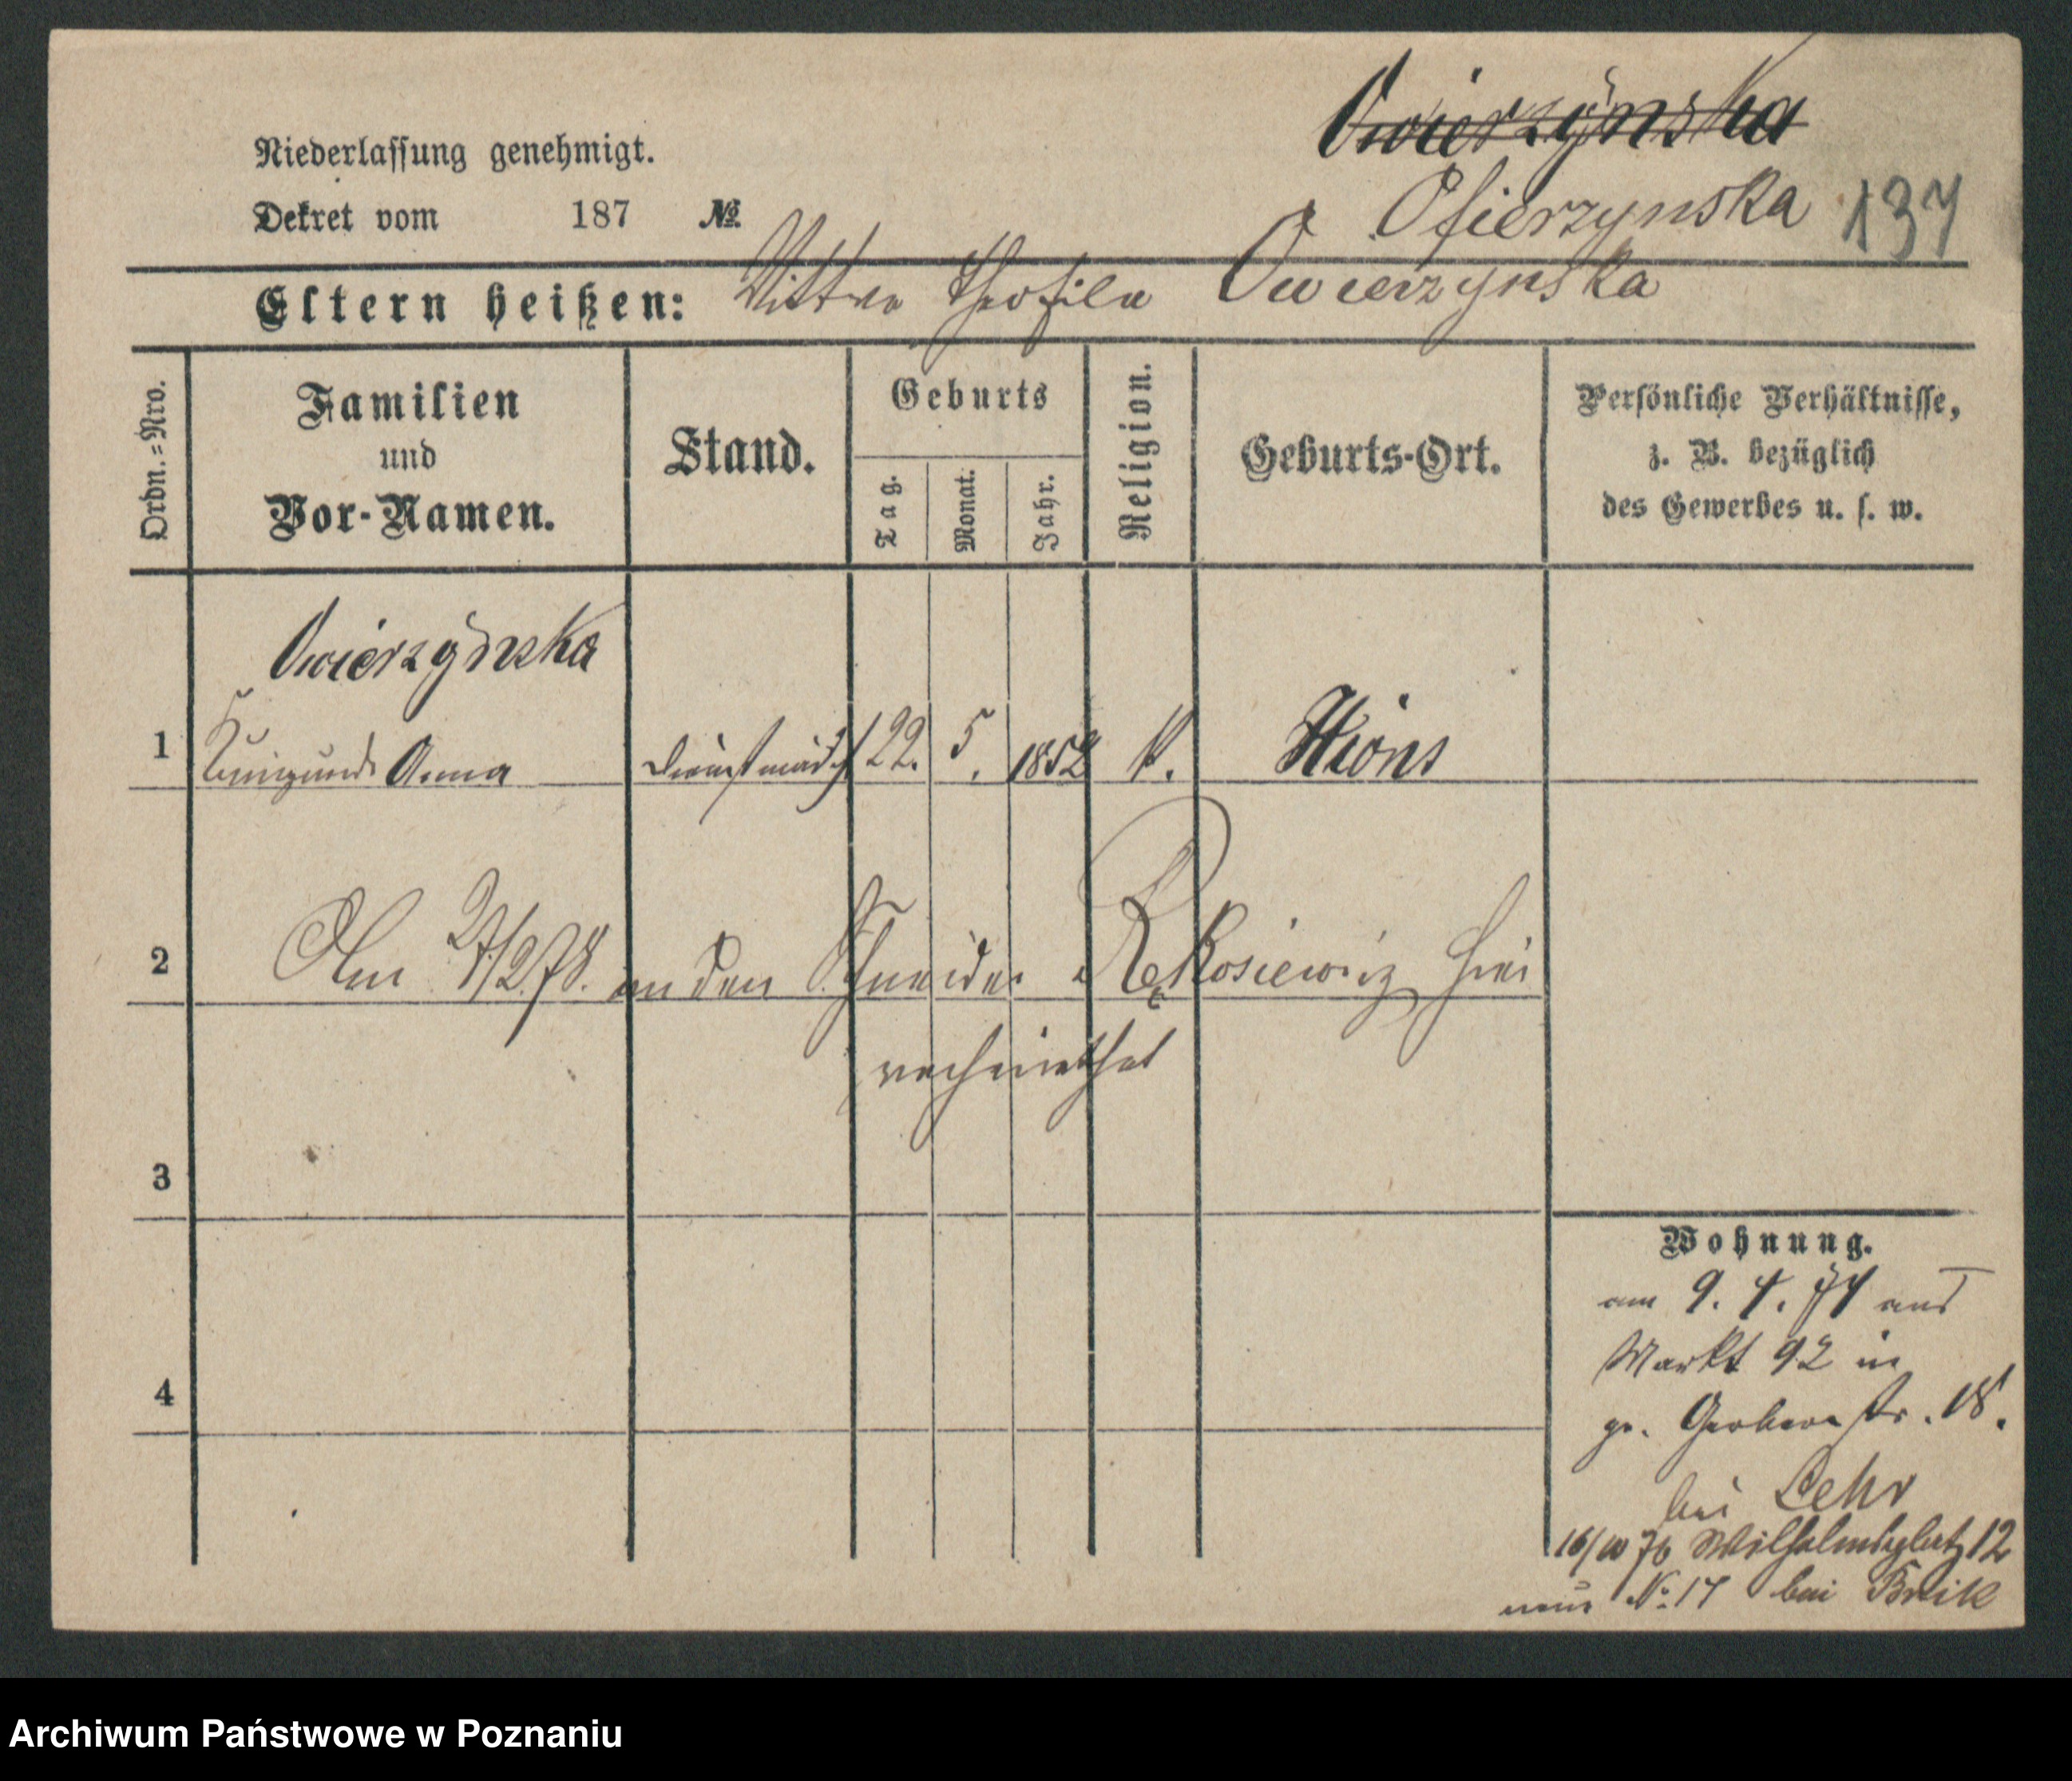 Owierzynska
Niederlassung genehmigt.
Ofierzynska 137
Dekret vom 187 №
Eltern heißen: Wittwe Theofila Owierzynska
Ordn.=Nro.
Familien und Vor-Namen.
Stand.
Geburts
Tag.
Monat.
Jahr.
Religion.
Geburts-Ort.
Persönliche Verhältnisse,
z. B. bezüglich
des Gewerbes u. s. w.
Owierzynska
1 Kunigunde Anna Dienstmädch 22. 5. 1852 k. Xions
2 Am an den Schneider Rękosiewicz hier
verheirathet
3
4
Wohnung.
am 9. 4. 74 aus
Markt 92 in
gr. Gerberstr. 18.
bei Lehr
16/10 76 Wilhelmsplatz 12
neue № 17 bei
Archiwum Państwowe w Poznaniu